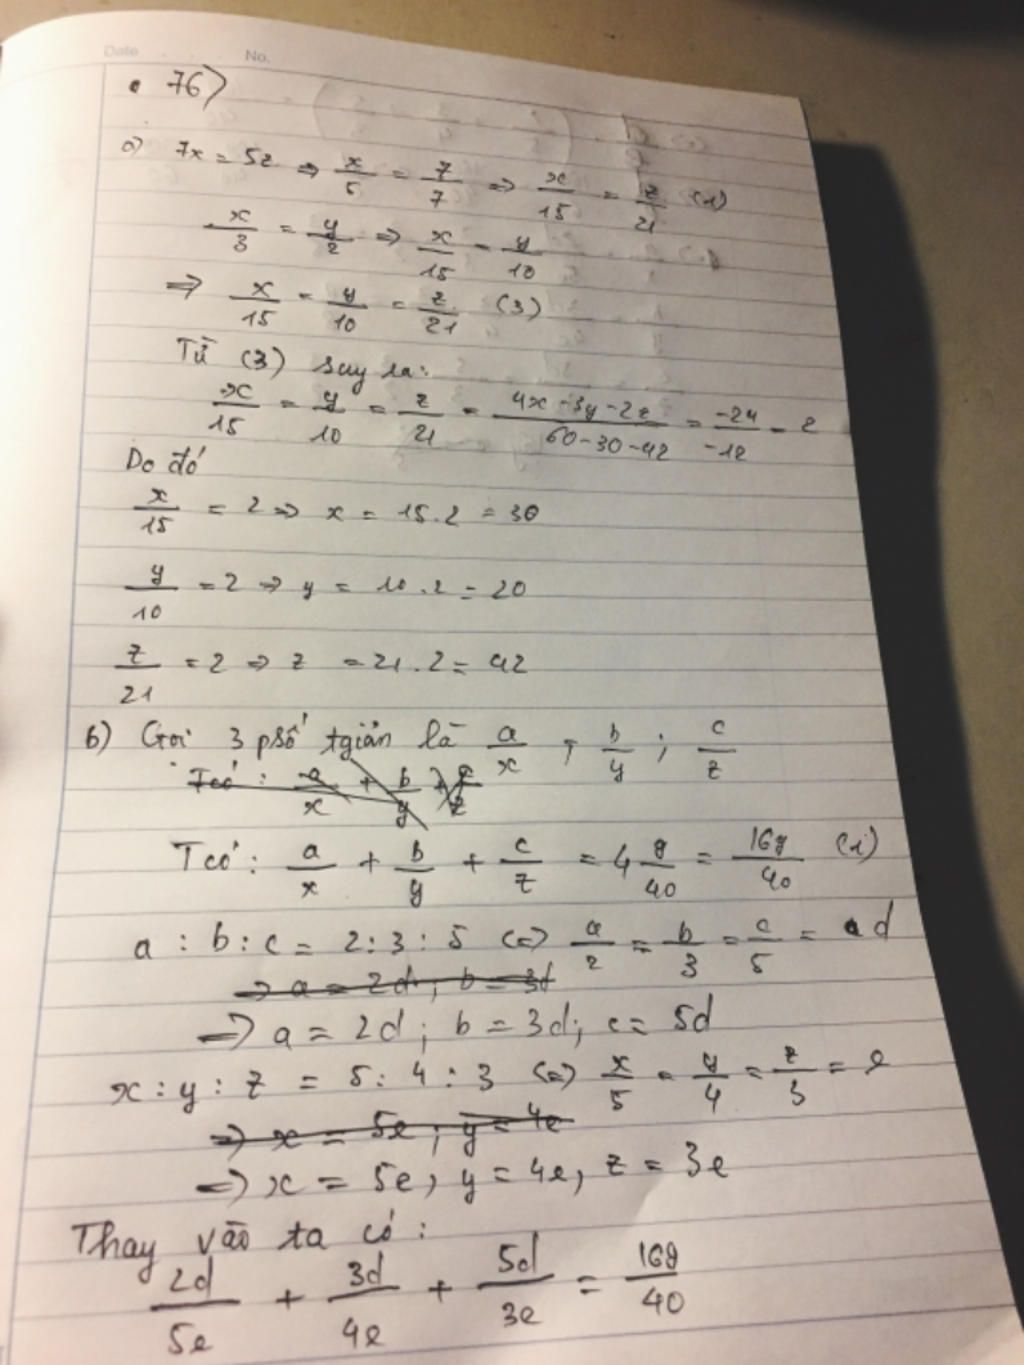 Date No.
• 76)
a) 7x = 5z ⇒ x/5 = z/7 ⇒ x/15 = z/21 (1)
x/3 = y/2 ⇒ x/15 = y/10
⇒ x/15 = y/10 = z/21 (3)
Từ (3) suy ra:
x/15 = y/10 = z/21 = (4x - 3y - 2z)/(60 - 30 - 42) = -24/-12 = 2
Do đó
x/15 = 2 ⇒ x = 15.2 = 30
y/10 = 2 ⇒ y = 10.2 = 20
z/21 = 2 ⇒ z = 21.2 = 42
b) Gọi 3 psố tgiản là a/x ; b/y ; c/z
Tcó: a/x + b/y + c/z
Tcó: a/x + b/y + c/z = 4 9/40 = 169/40 (1)
a : b : c = 2 : 3 : 5 (=) a/2 = b/3 = c/5 = d
⇒ a = 2d ; b = 3d
=) a = 2d ; b = 3d; c = 5d
x : y : z = 5 : 4 : 3 (=) x/5 = y/4 = z/3 = e
⇒ x = 5e ; y = 4e
=) x = 5e, y = 4e, z = 3e
Thay vào ta có :
2d/5e + 3d/4e + 5d/3e = 169/40